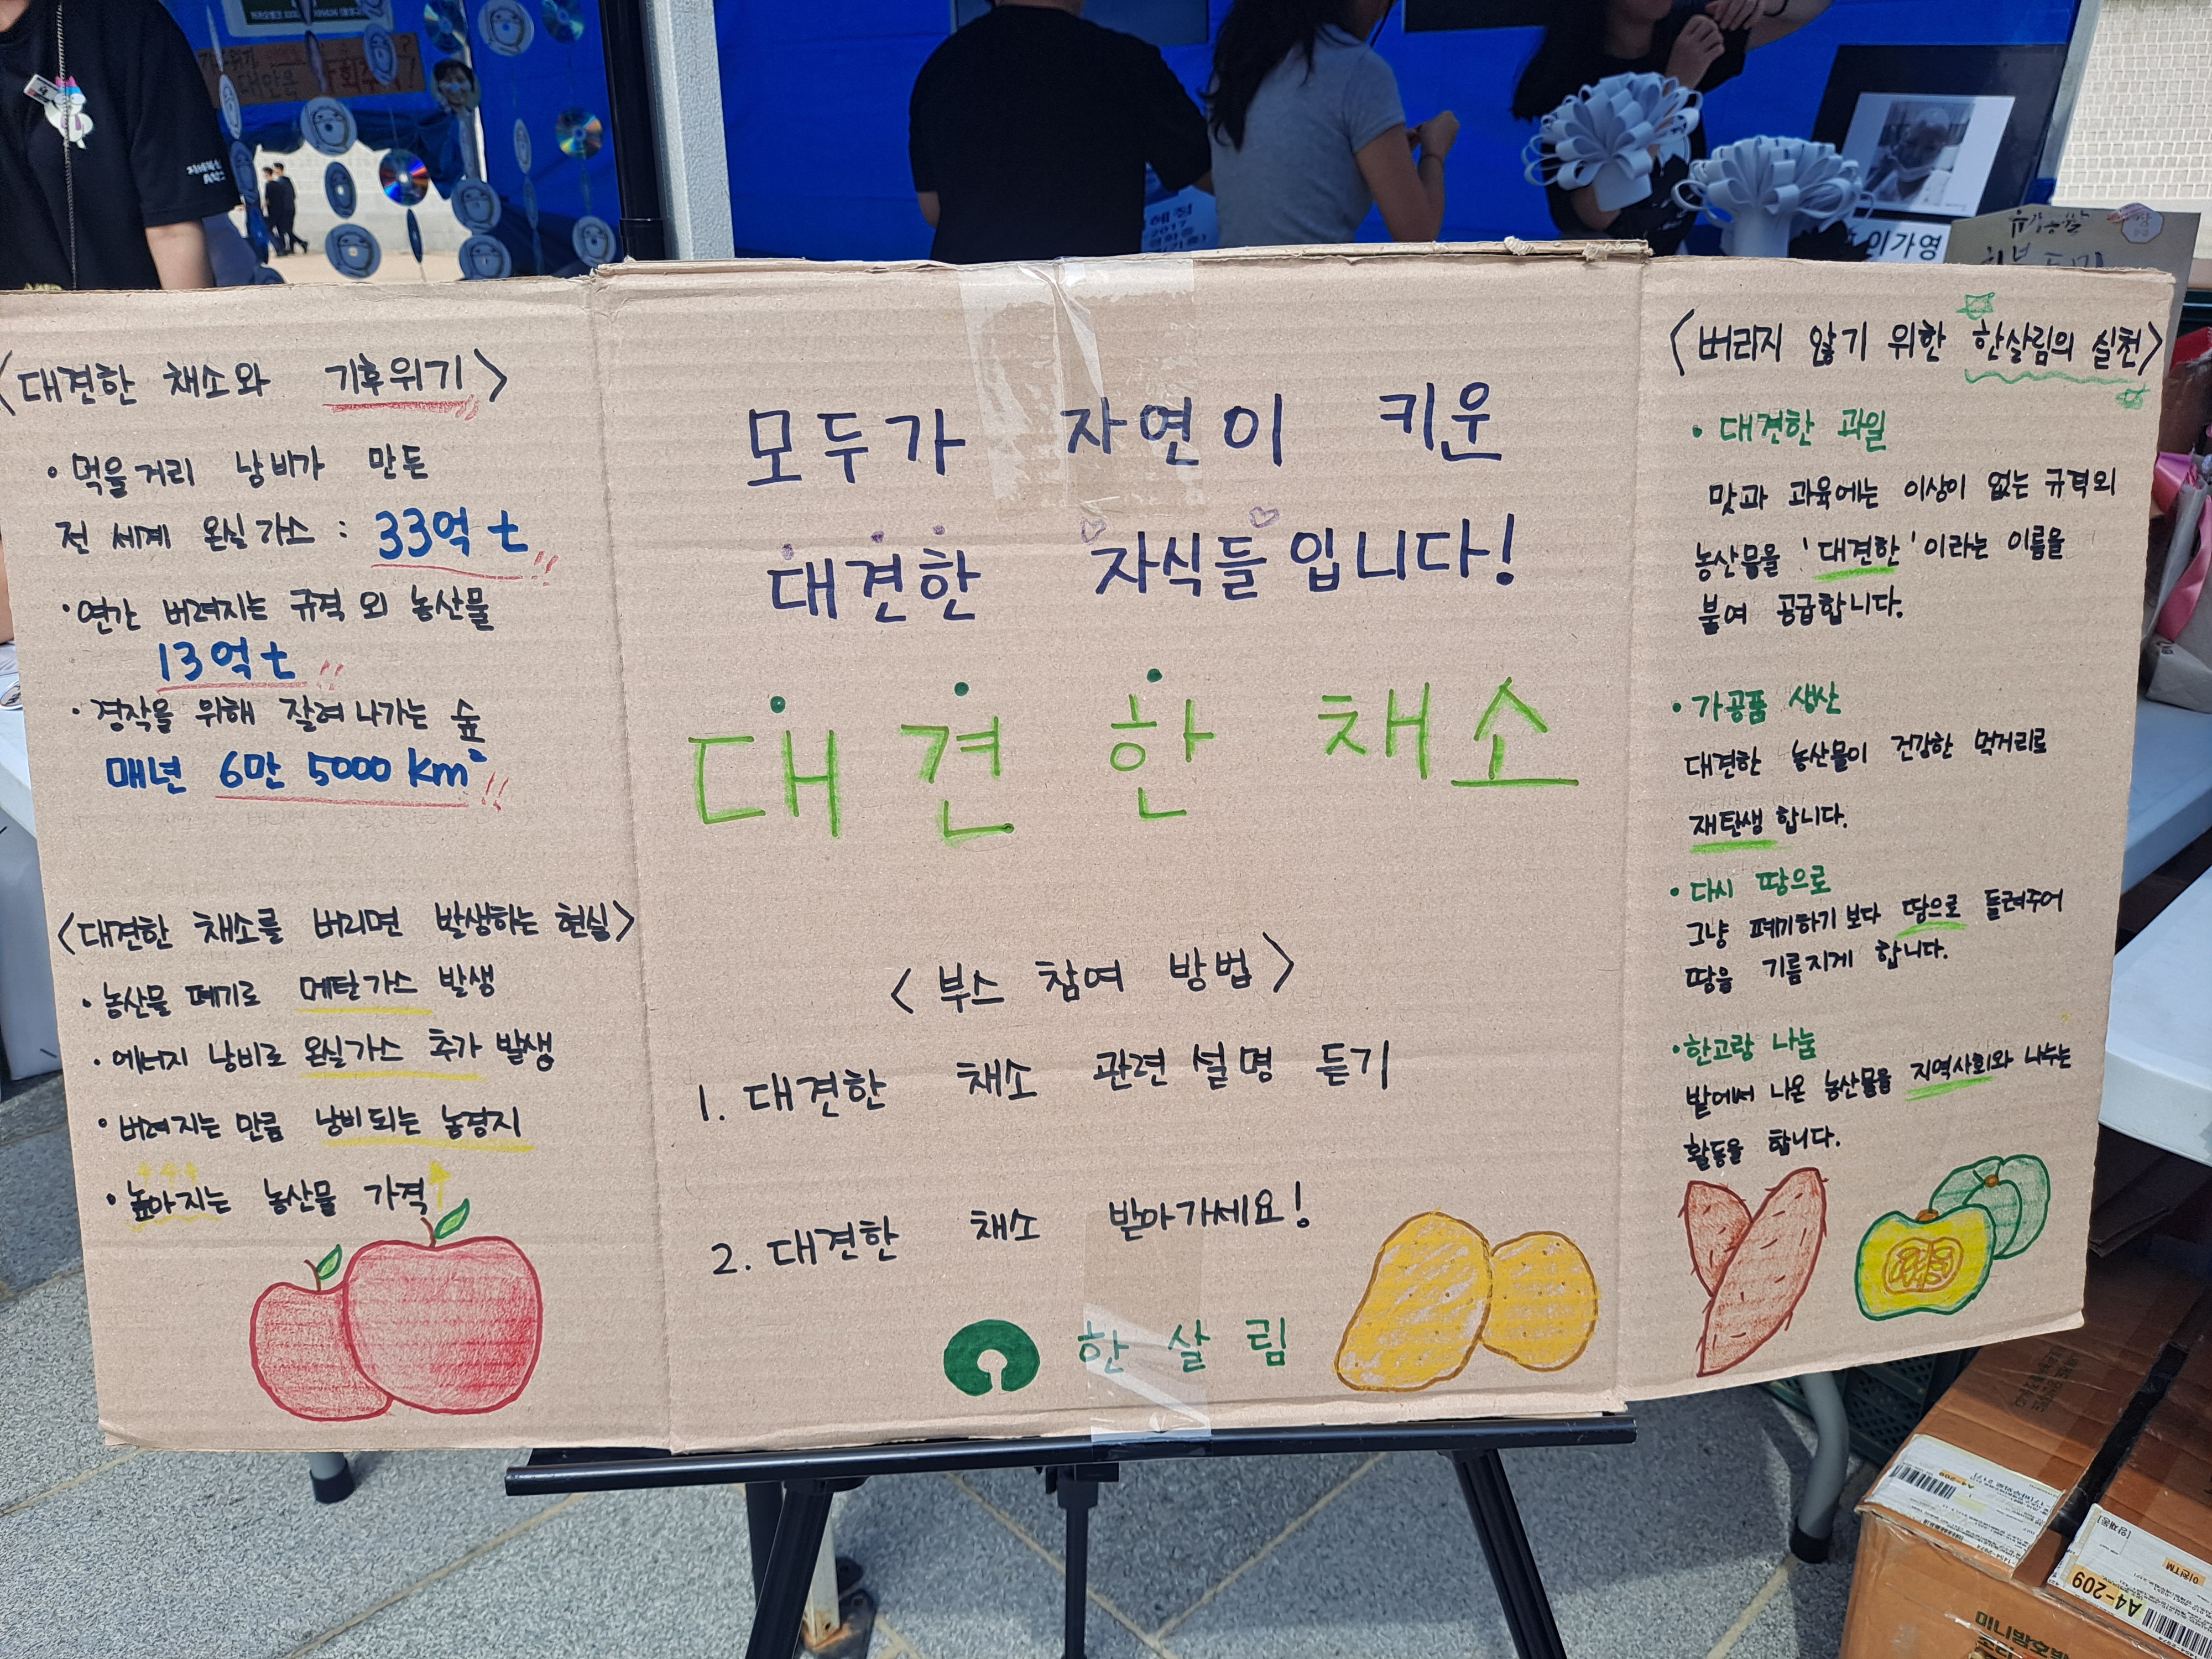 <대견한 채소와 기후위기>
• 먹을거리 낭비가 만든
전 세계 온실가스 : 33억 t !!
• 연간 버려지는 규격 외 농산물
13억 t !!
• 경작을 위해 잘려나가는 숲
매년 6만 5000 km² !!
<대견한 채소를 버리면 발생하는 현실>
• 농산물 폐기로 메탄가스 발생
• 에너지 낭비로 온실가스 추가 발생
• 버려지는 만큼 낭비되는 농경지
• 높아지는 농산물 가격↑
모두가 자연이 키운
대견한 자식들입니다!
대견한 채소
<부스 참여 방법>
1. 대견한 채소 관련 설명 듣기
2. 대견한 채소 받아가세요!
한살림
<버리지 않기 위한 한살림의 실천>
• 대견한 과일
맛과 과육에는 이상이 없는 규격외
농산물을 '대견한'이라는 이름을
붙여 공급합니다.
• 가공품 생산
대견한 농산물이 건강한 먹거리로
재탄생 합니다.
• 다시 땅으로
그냥 폐기하기 보다 땅으로 돌려주어
땅을 기름지게 합니다.
• 한고랑 나눔
밭에서 나온 농산물을 지역사회와 나누는
활동을 합니다.
이가영
2017
A4-209
A4-209